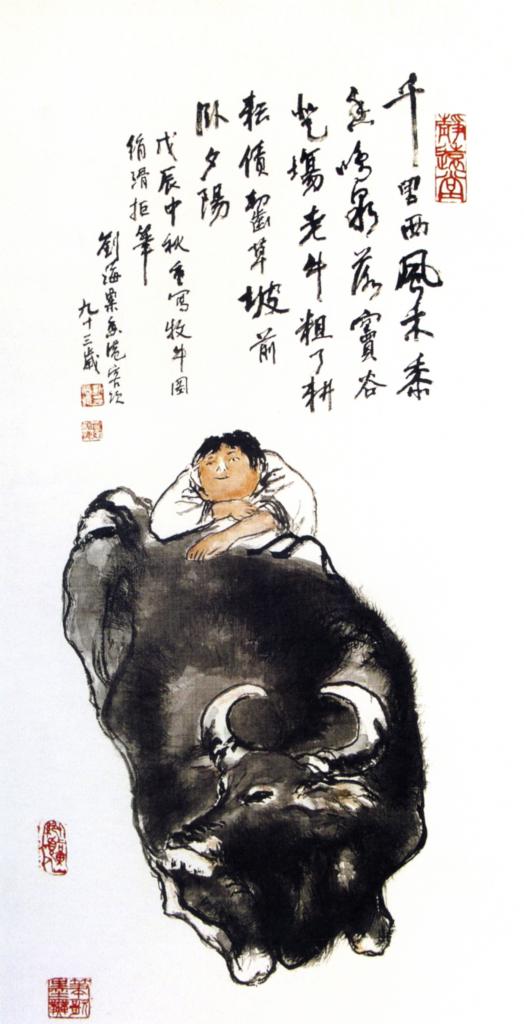 靜遠堂
千里西風禾黍
香鳴泉落竇谷
登場老牛粗了耕
耘債齧草坡前
臥夕陽
戊辰中秋重寫牧牛圖
絹滑拒筆
劉海粟香港客次
九十三歲